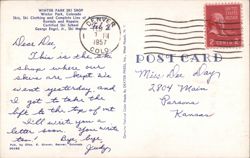 WINTER PARK SKI SHOP
Winter Park, Colorado
Skis, Ski Clothing and Complete Line of
Rentals and Repairs
Certified Ski School
George Engel, Jr., Ski
Dear Dee,
This is the ski
shop where our
skis are kept. We
went yesterday and
I got to take the
lift to the top of mt.
I'll write you a
letter soon. You write
too! Bye, bye
Judy
DENVER
FEB 2
PM
1957
COLO.
2 CENTS 2
POST CARD
Miss Dee Day
2804 Main
Parsons
Kansas